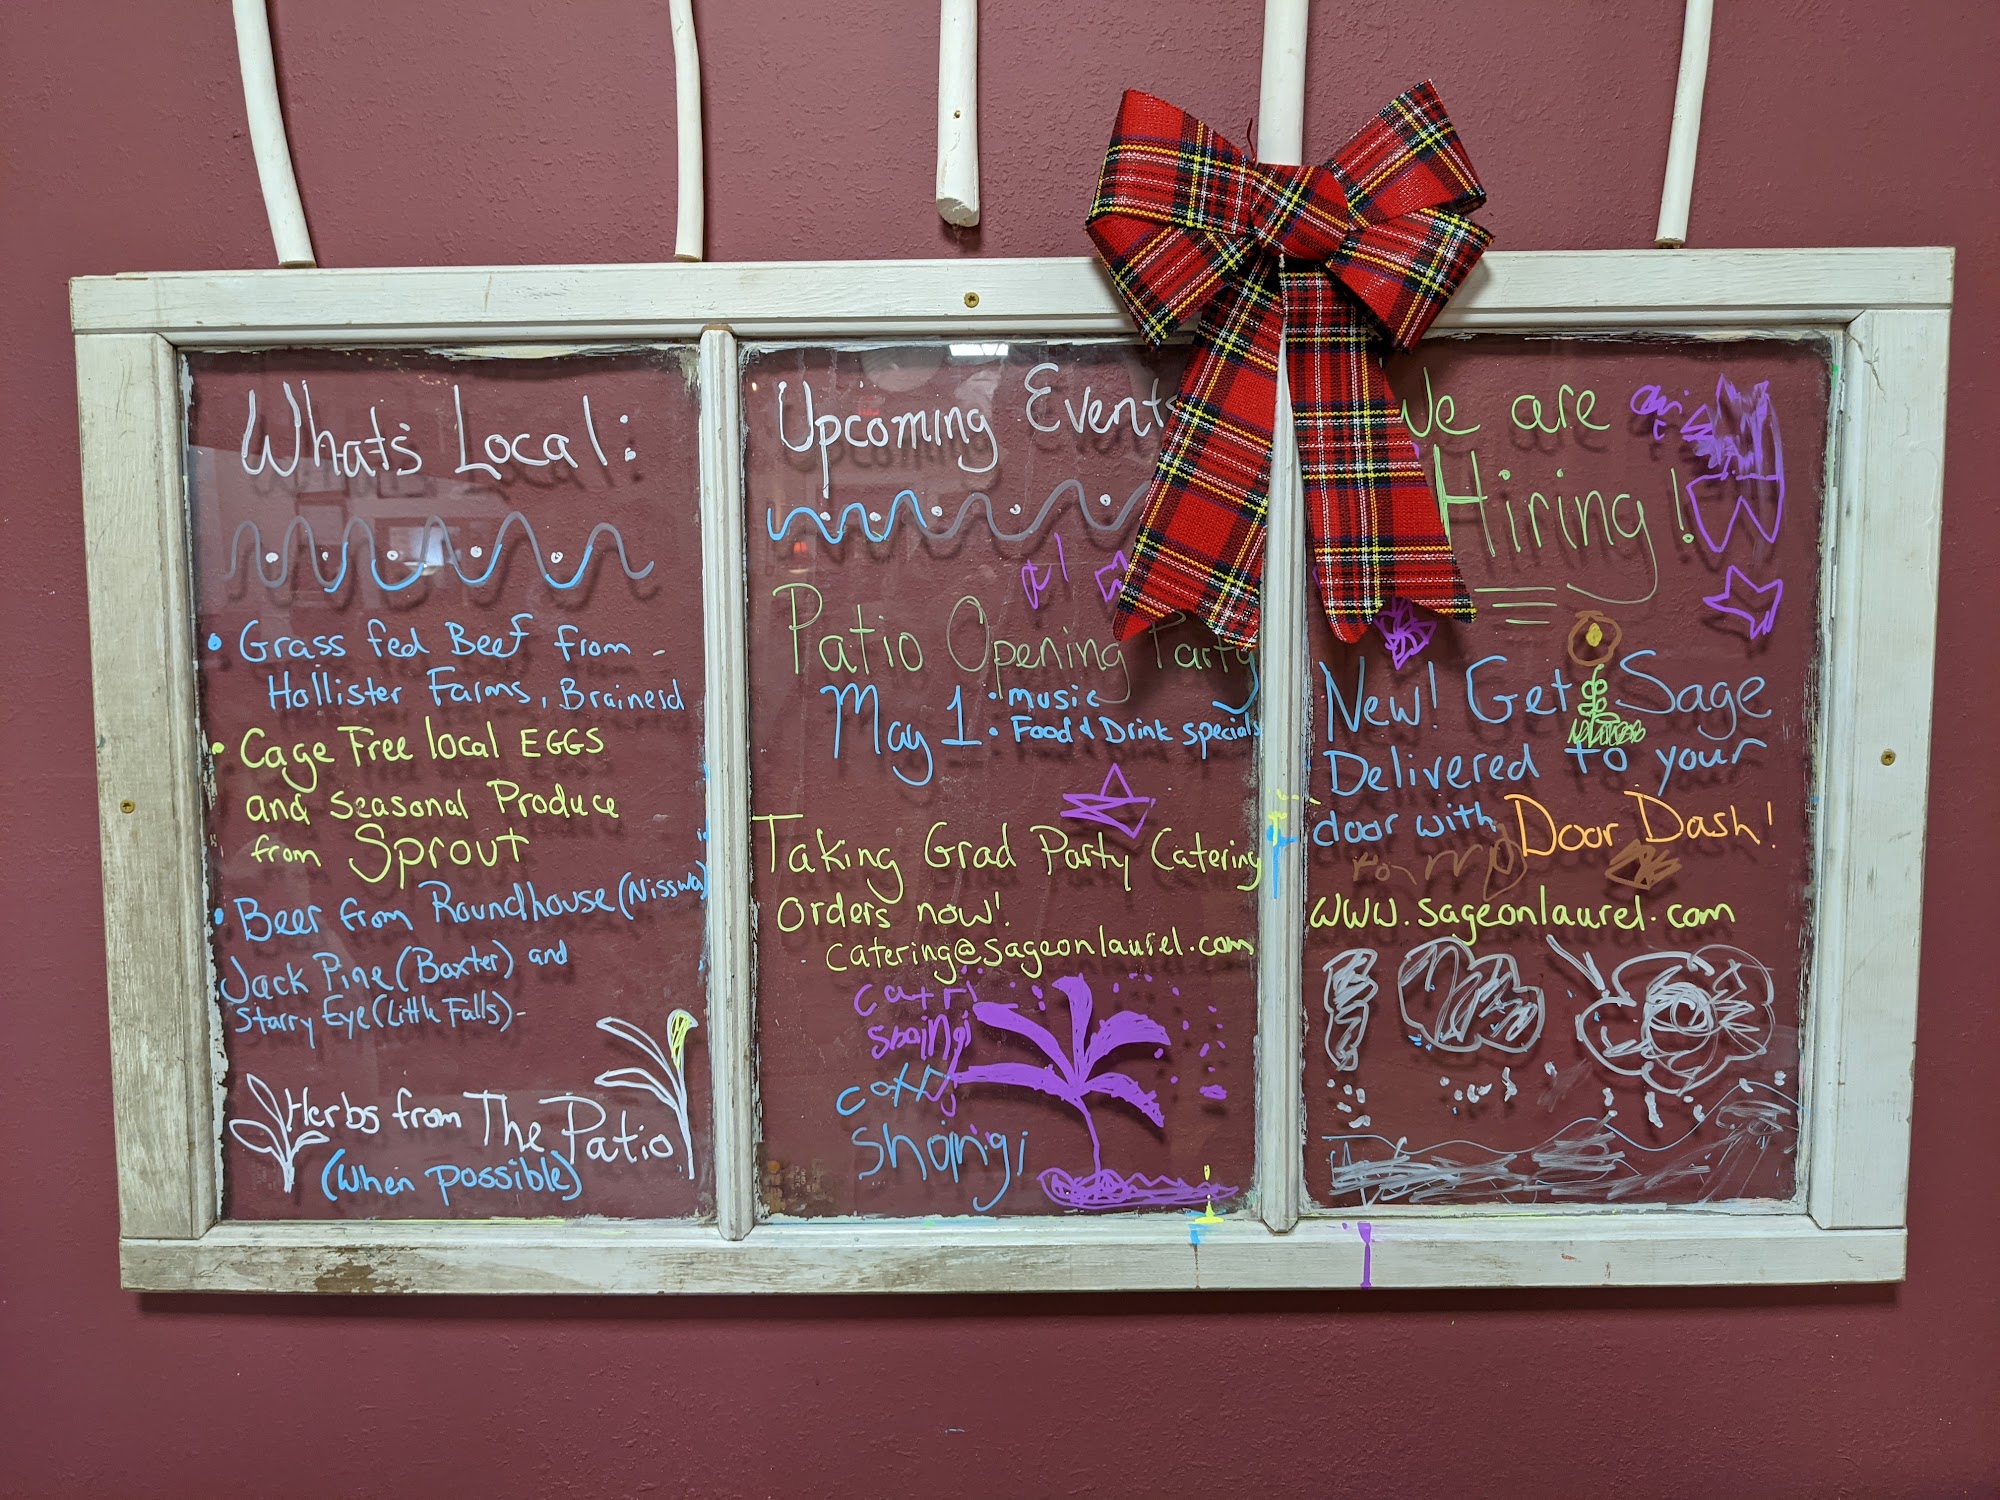 Whats Local:
• Grass fed Beef from -
Hollister Farms, Brainerd
• Cage Free local EGGS
and seasonal Produce
from Sprout
• Beer from Roundhouse (Nisswa)
Jack Pine (Baxter) and
Starry Eye (Little Falls) -
Herbs from The Patio
(when possible)
Upcoming Events
Patio Opening Party
May 1 • music
• Food & Drink specials
Taking Grad Party Catering
Orders now!
catering@sageonlaurel.com
We are
Hiring!
New! Get Sage
Delivered to your
door with Door Dash!
www.sageonlaurel.com